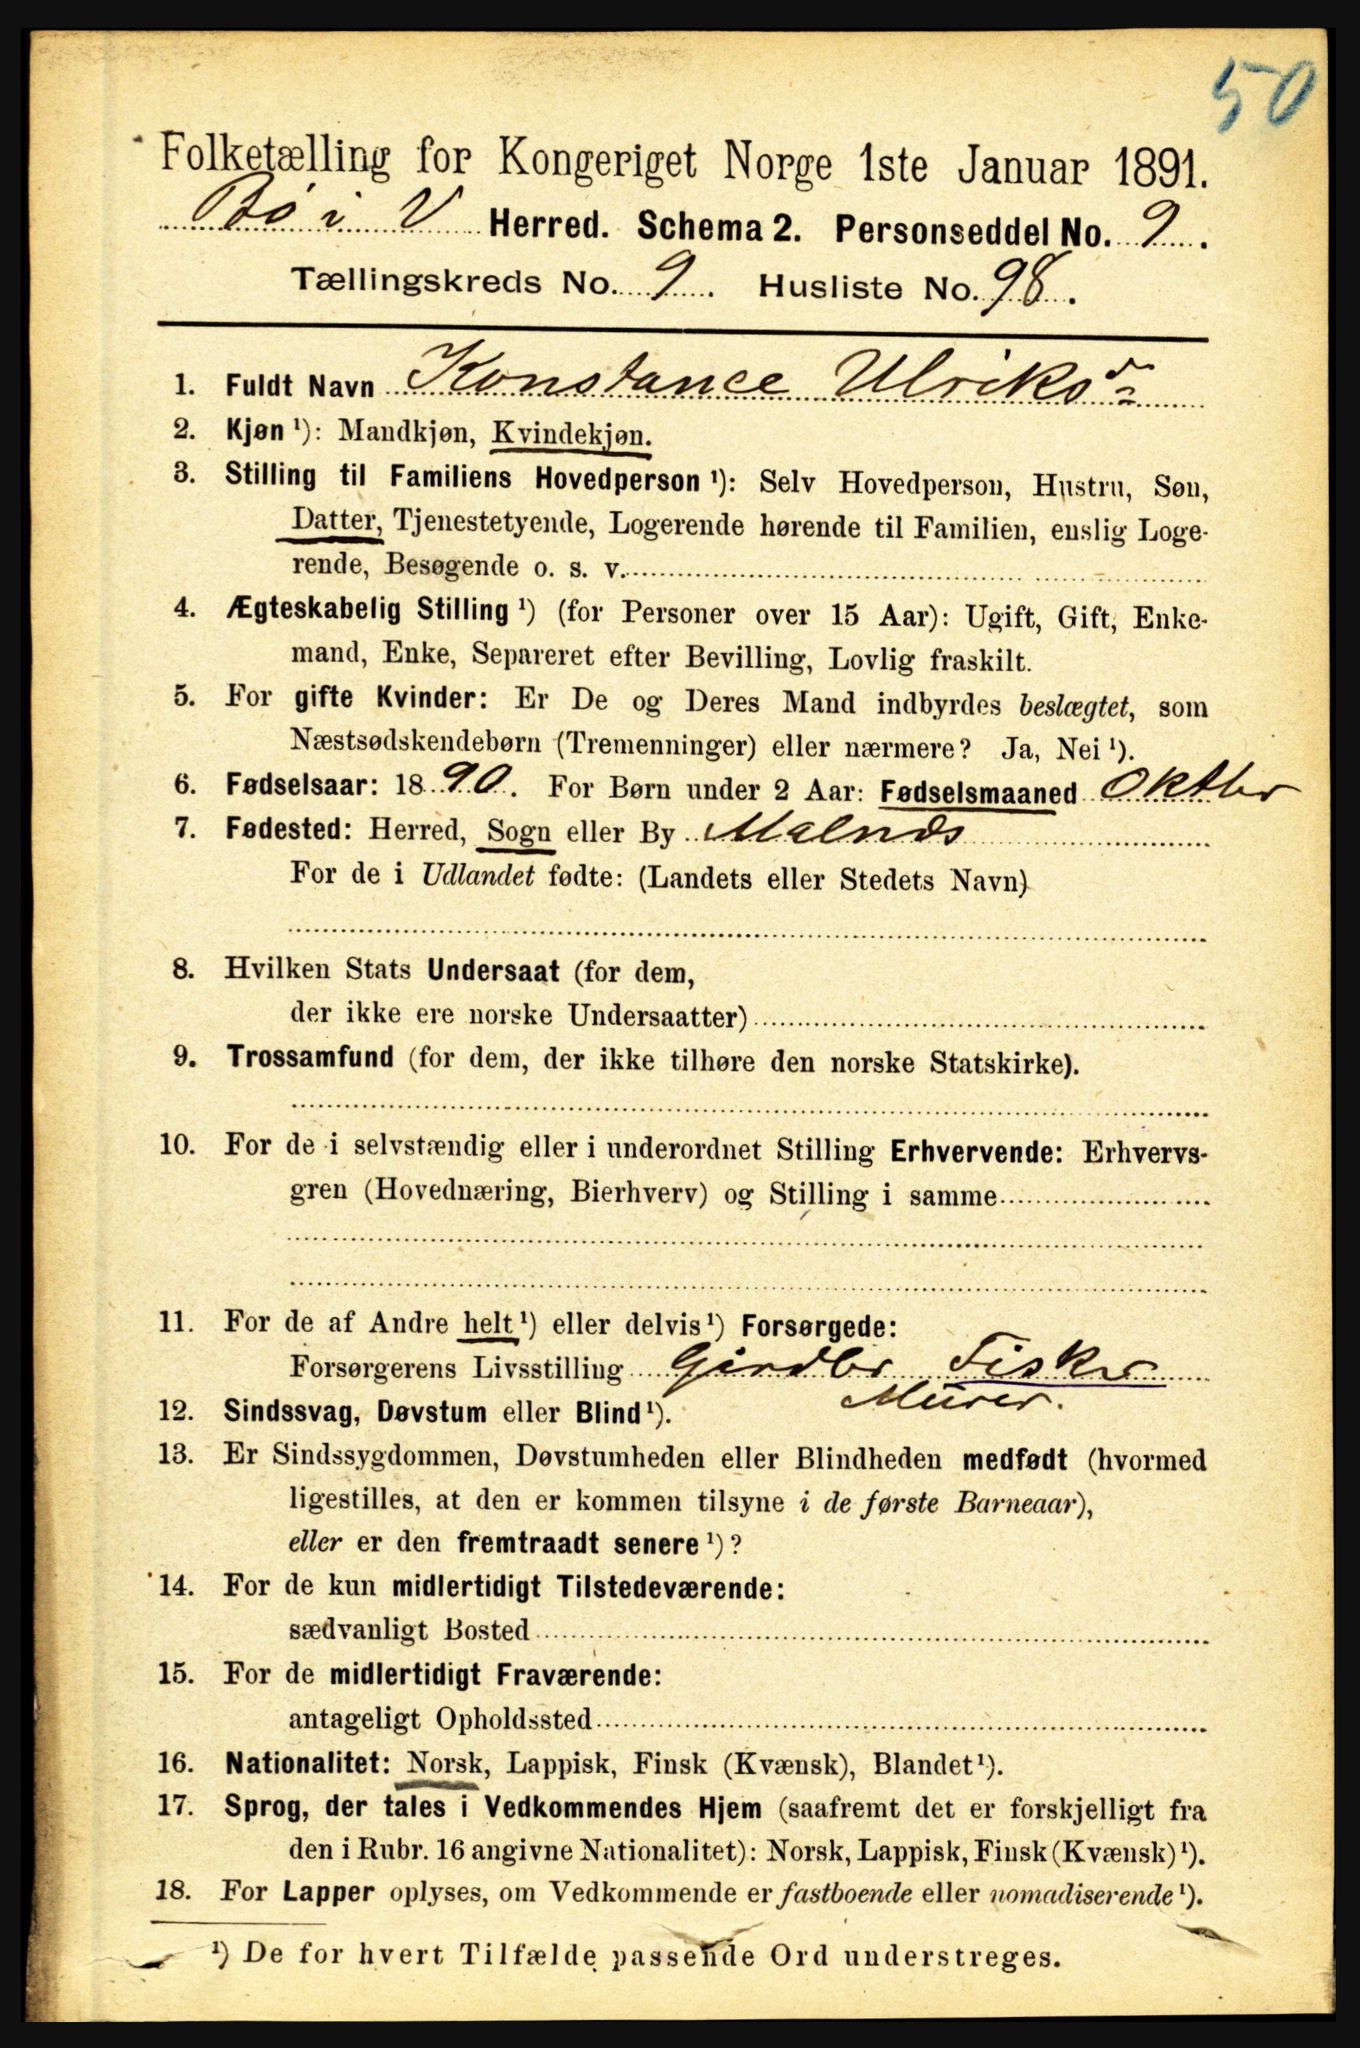 50
Folketælling for Kongeriget Norge 1ste Januar 1891.
Bø i V Herred. Schema 2. Personseddel No. 9.
Tællingskreds No. 9. Husliste No. 98.
1. Fuldt Navn Konstance Ulriksd
2. Kjøn ¹): Mandkjøn, Kvindekjøn.
3. Stilling til Familiens Hovedperson ¹): Selv Hovedperson, Hustru, Søn,
Datter, Tjenestetyende, Logerende hørende til Familien, enslig Loge-
rende, Besøgende o. s. v.
4. Ægteskabelig Stilling ¹) (for Personer over 15 Aar): Ugift, Gift, Enke-
mand, Enke, Separeret efter Bevilling, Lovlig fraskilt.
5. For gifte Kvinder: Er De og Deres Mand indbyrdes beslægtet, som
Næstsødskendebørn (Tremenninger) eller nærmere? Ja, Nei ¹).
6. Fødselsaar: 1890. For Børn under 2 Aar: Fødselsmaaned Oktbr
7. Fødested: Herred, Sogn eller By Malnæs
For de i Udlandet fødte: (Landets eller Stedets Navn)
8. Hvilken Stats Undersaat (for dem,
der ikke ere norske Undersaatter)
9. Trossamfund (for dem, der ikke tilhøre den norske Statskirke).
10. For de i selvstændig eller i underordnet Stilling Erhvervende: Erhvervs-
gren (Hovednæring, Bierhverv) og Stilling i samme
11. For de af Andre helt ¹) eller delvis ¹) Forsørgede:
Forsørgerens Livsstilling Girdbr Fisker
Murer.
12. Sindssvag, Døvstum eller Blind ¹).
13. Er Sindssygdommen, Døvstumheden eller Blindheden medfødt (hvormed
ligestilles, at den er kommen tilsyne i de første Barneaar),
eller er den fremtraadt senere ¹)?
14. For de kun midlertidigt Tilstedeværende:
sædvanligt Bosted
15. For de midlertidigt Fraværende:
antageligt Opholdssted
16. Nationalitet: Norsk, Lappisk, Finsk (Kvænsk), Blandet ¹).
17. Sprog, der tales i Vedkommendes Hjem (saafremt det er forskjelligt fra
den i Rubr. 16 angivne Nationalitet): Norsk, Lappisk, Finsk (Kvænsk) ¹).
18. For Lapper oplyses, om Vedkommende er fastboende eller nomadiserende ¹).
¹) De for hvert Tilfælde passende Ord understreges.